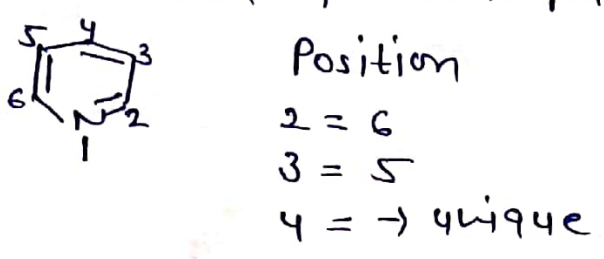 5 4 3
6 N 2
1
Position
2 = 6
3 = 5
4 = → unique